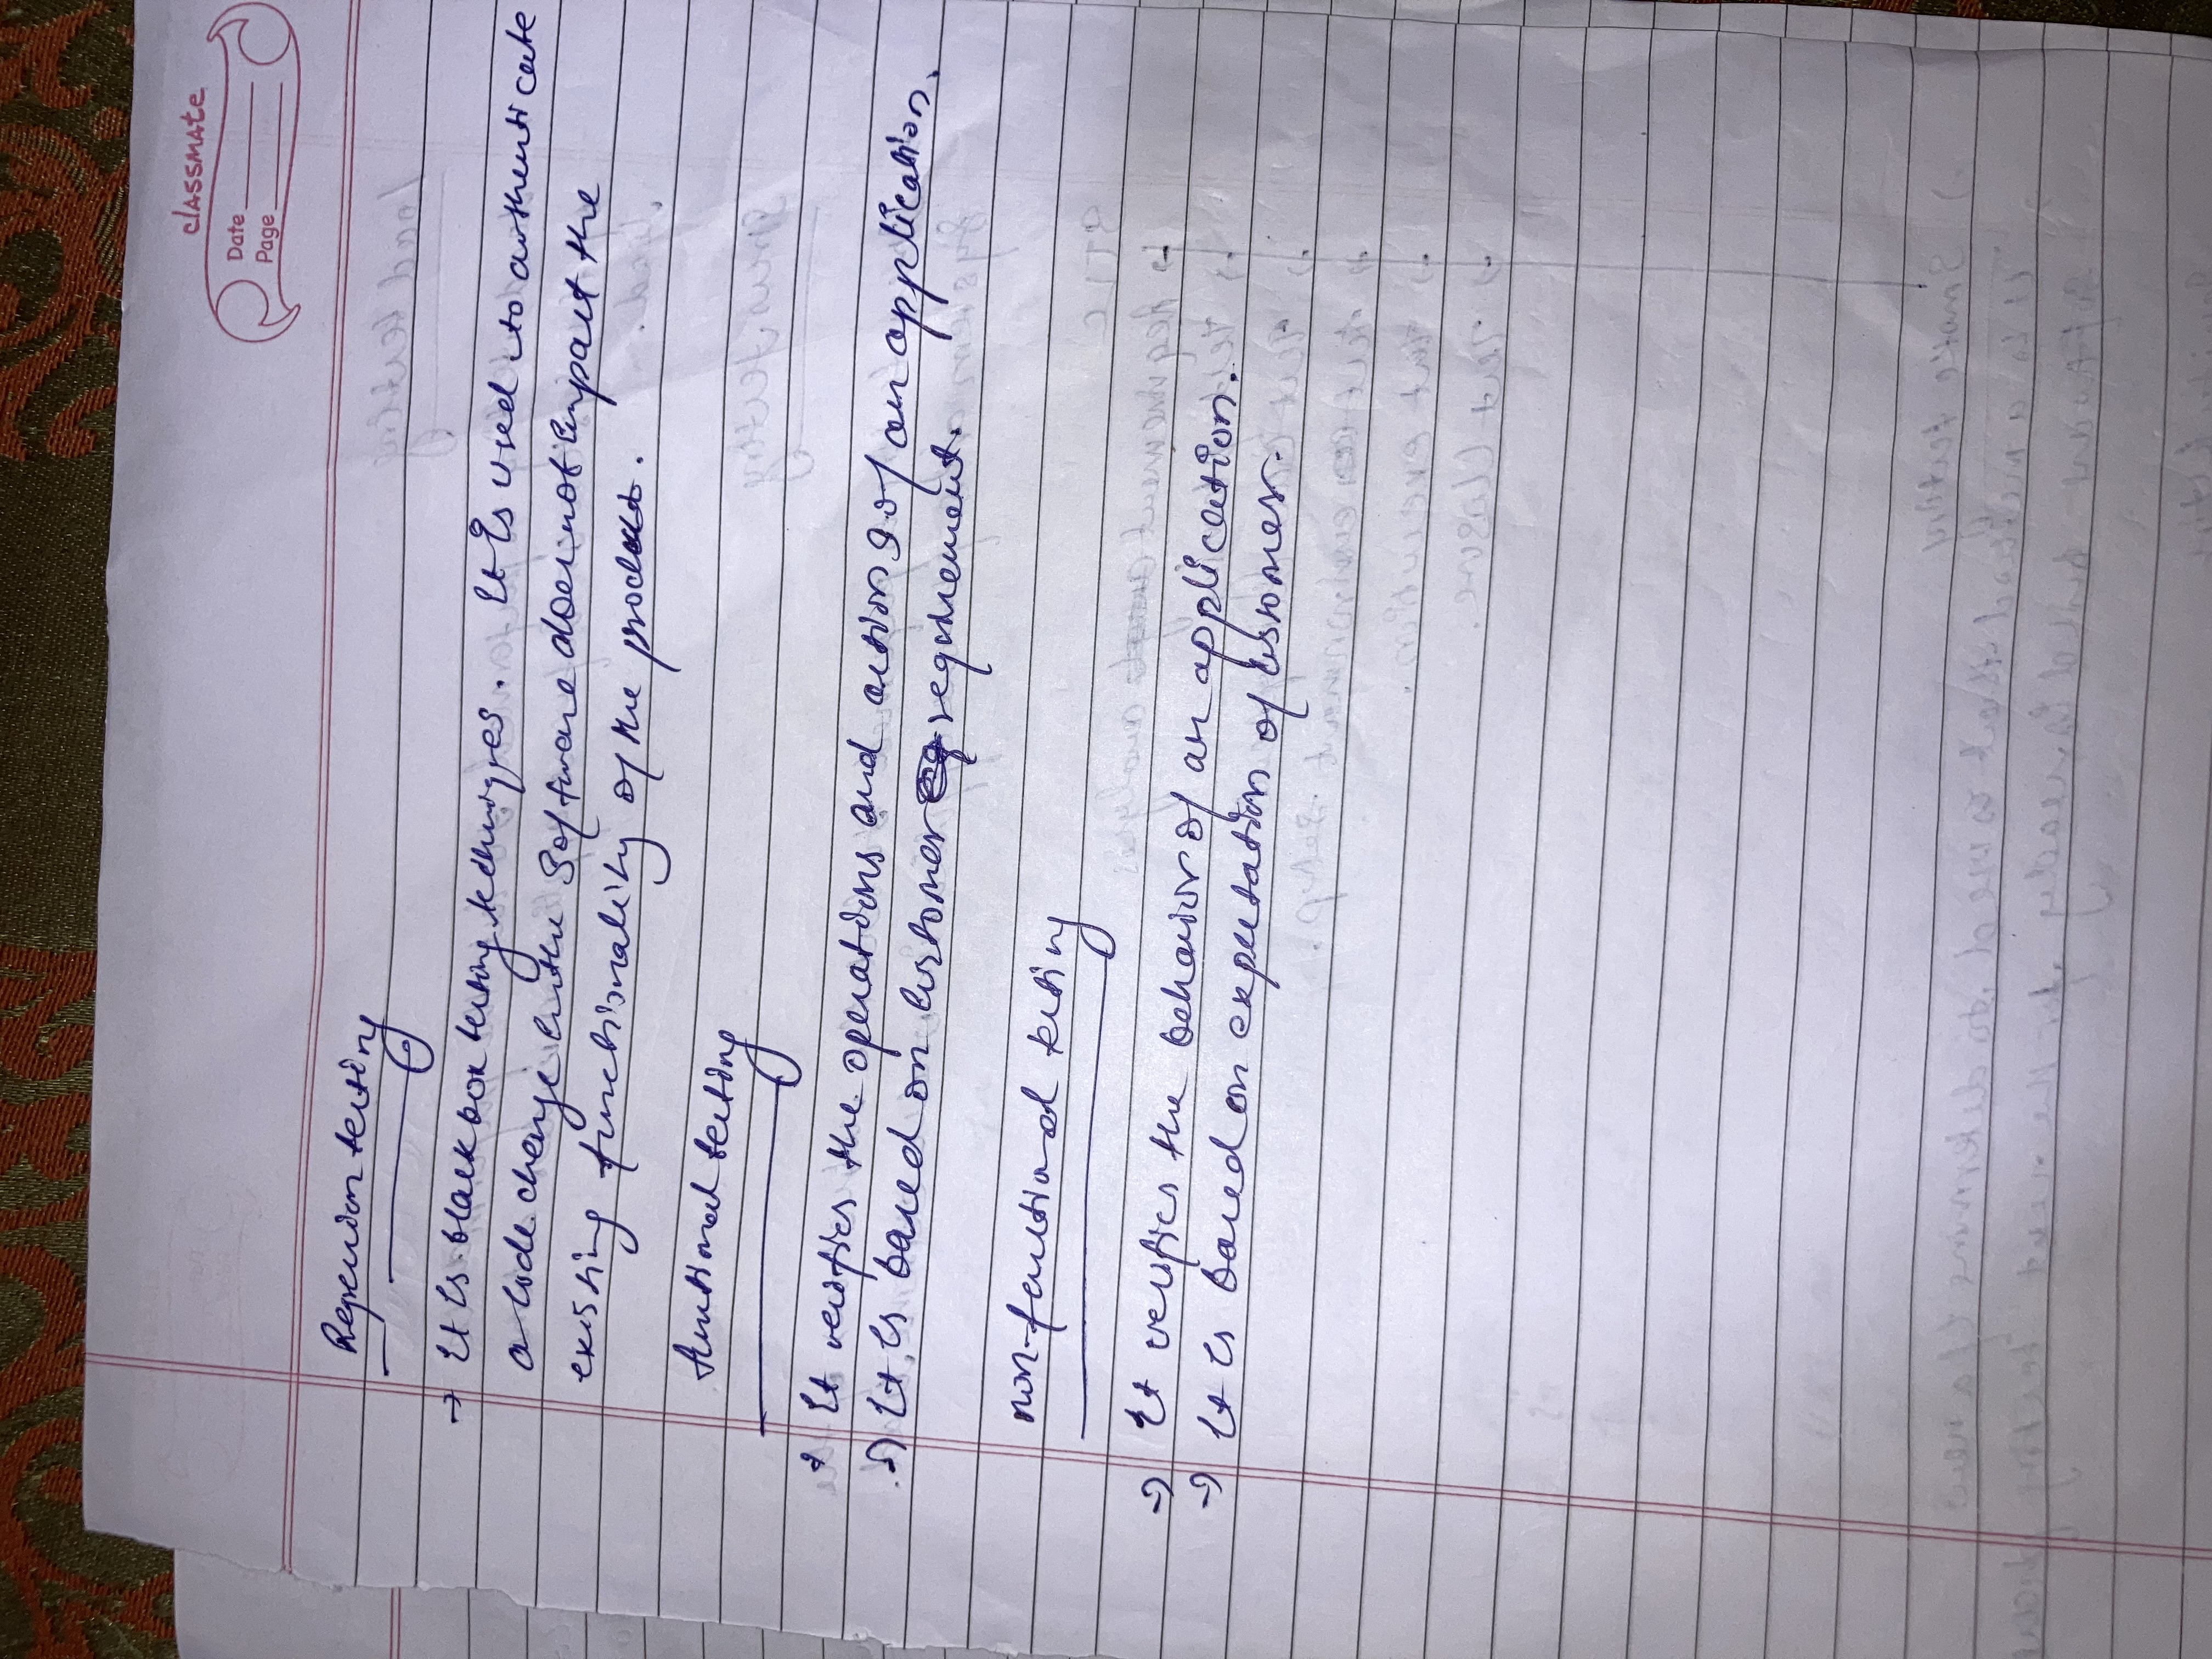 classmate
Date
Page
Regression testing
→ It is black box testing techniques. It is used to authenticate
a code change in the software does not impact the
existing functionality of the product.
functional testing
→ It verifies the operations and actions of an application.
→ It is based on customer requirement.
non-functional testing
→ It verifies the behavior of an application.
→ It is based on expectation of customer.